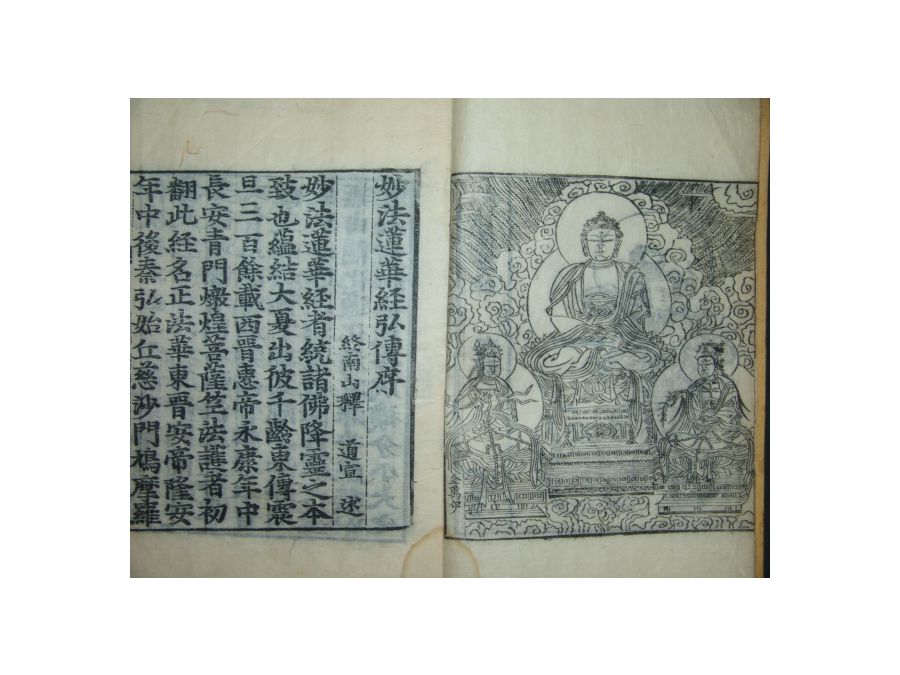 萬伊
妙法蓮華経弘傳序
終南山釋 道宣 述
妙法蓮華経者統諸佛降靈之本
致也蘊結大夏出彼千齡東傳震
旦三百餘載西晉惠帝永康年中
長安青門燉煌菩薩竺法護者初
翻此経名正法華東晉安帝隆安
年中後秦弘始丘慈沙門鳩摩羅